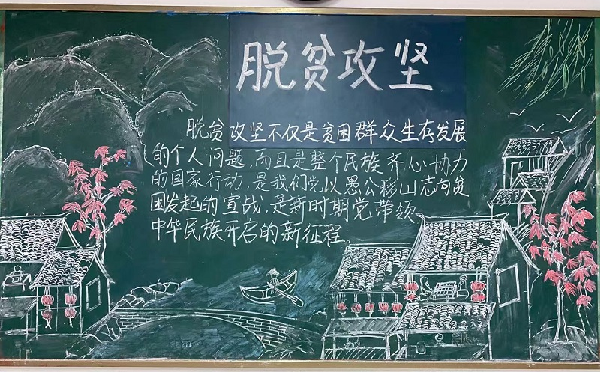 脱贫攻坚
脱贫攻坚不仅是贫困群众生存发展
的个人问题,而且是整个民族齐心协力
的国家行动,是我们党以愚公移山志向贫
困发起的宣战,是新时期党带领
中华民族开启的新征程。